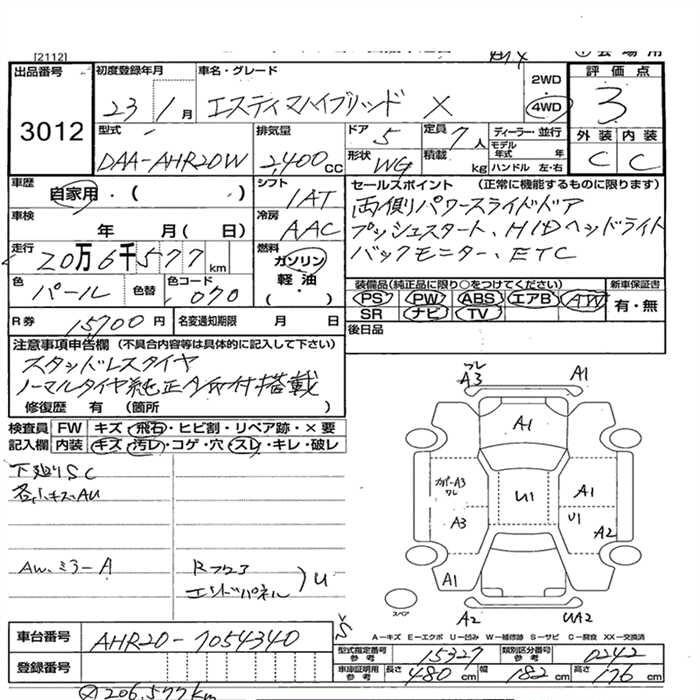 [2112]
出品番号 3012
初度登録年月 23年1月
車名・グレード エスティマハイブリッド X
2WD
4WD
評価点 3
外装 C 内装 C
型式 DAA-AHR20W
排気量 2,400cc
ドア 5
形状 WG
定員 7人
積載 kg
ディーラー・並行
モデル年式 年
ハンドル 左・右
車歴 自家用・( )
シフト IAT
セールスポイント (正常に機能するものに限ります)
両側パワースライドドア
プッシュスタート、HIDヘッドライト
バックモニター、ETC
車検 年 月( 日)
冷房 AAC
走行 20万6千577km
燃料 ガソリン
軽油
( ・ )
色 パール 色替 色コード 070
装備品(純正品に限り○をつけてください) 新車保証書
PS PW ABS エアB AW 有・無
SR ナビ TV
R券 15700円 名変通知期限 月 日
後日品
注意事項申告欄 (不具合内容等は具体的に記入して下さい)
スタッドレスタイヤ
ノーマルタイヤ純正A/W付搭載
修復歴 有 (箇所 )
検査員記入欄 FW キズ・飛石・ヒビ割・リペア跡・×要
内装 キズ・汚レ・コゲ・穴・スレ・キレ・破レ
下廻りSC
各小キズAU
AW.ミラーA
Rフロア
エンドパネル
)U
ワレ
A3
A1
A1
カバーA3
ワレ
U1
A1
A3
U1
A2
A1
スペア
A2
UA2
A－キズ E－エクボ U－凹み W－補修跡 S－サビ C－腐食 XX－交換済
車台番号 AHR20-7054340
登録番号
型式指定番号参考 15327 類別区分番号参考 0242
車庫証明用参考 長さ 480cm 幅 182cm 高さ 176cm
206,577km